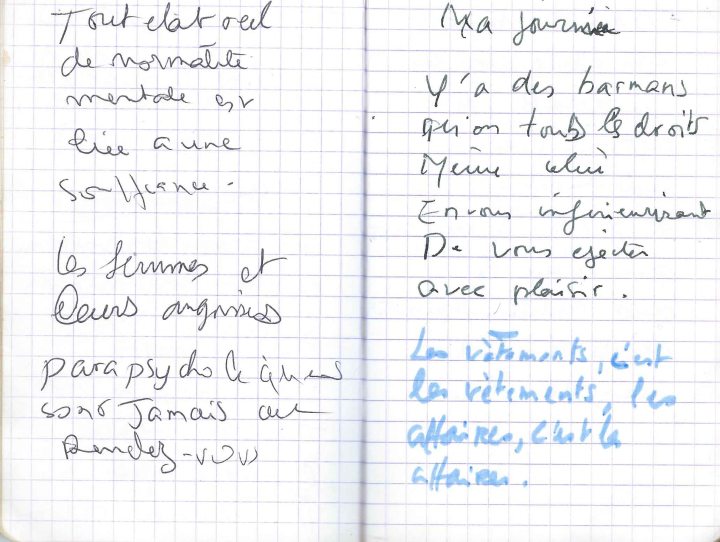 Tout état réel
de normalité
mentale est
liée a une
souffrance.
Les femmes et
leurs angoisses
parapsychologiques
sont Jamais au
Rendez-vous
Ma journée
Y'a des barmans
qui on touts les droits
Même celui
En vous inférieurisant
De vous ejecter
avec plaisir.
Les vêtements, c'est
les vêtements, les
affaires, c'est les
affaires.